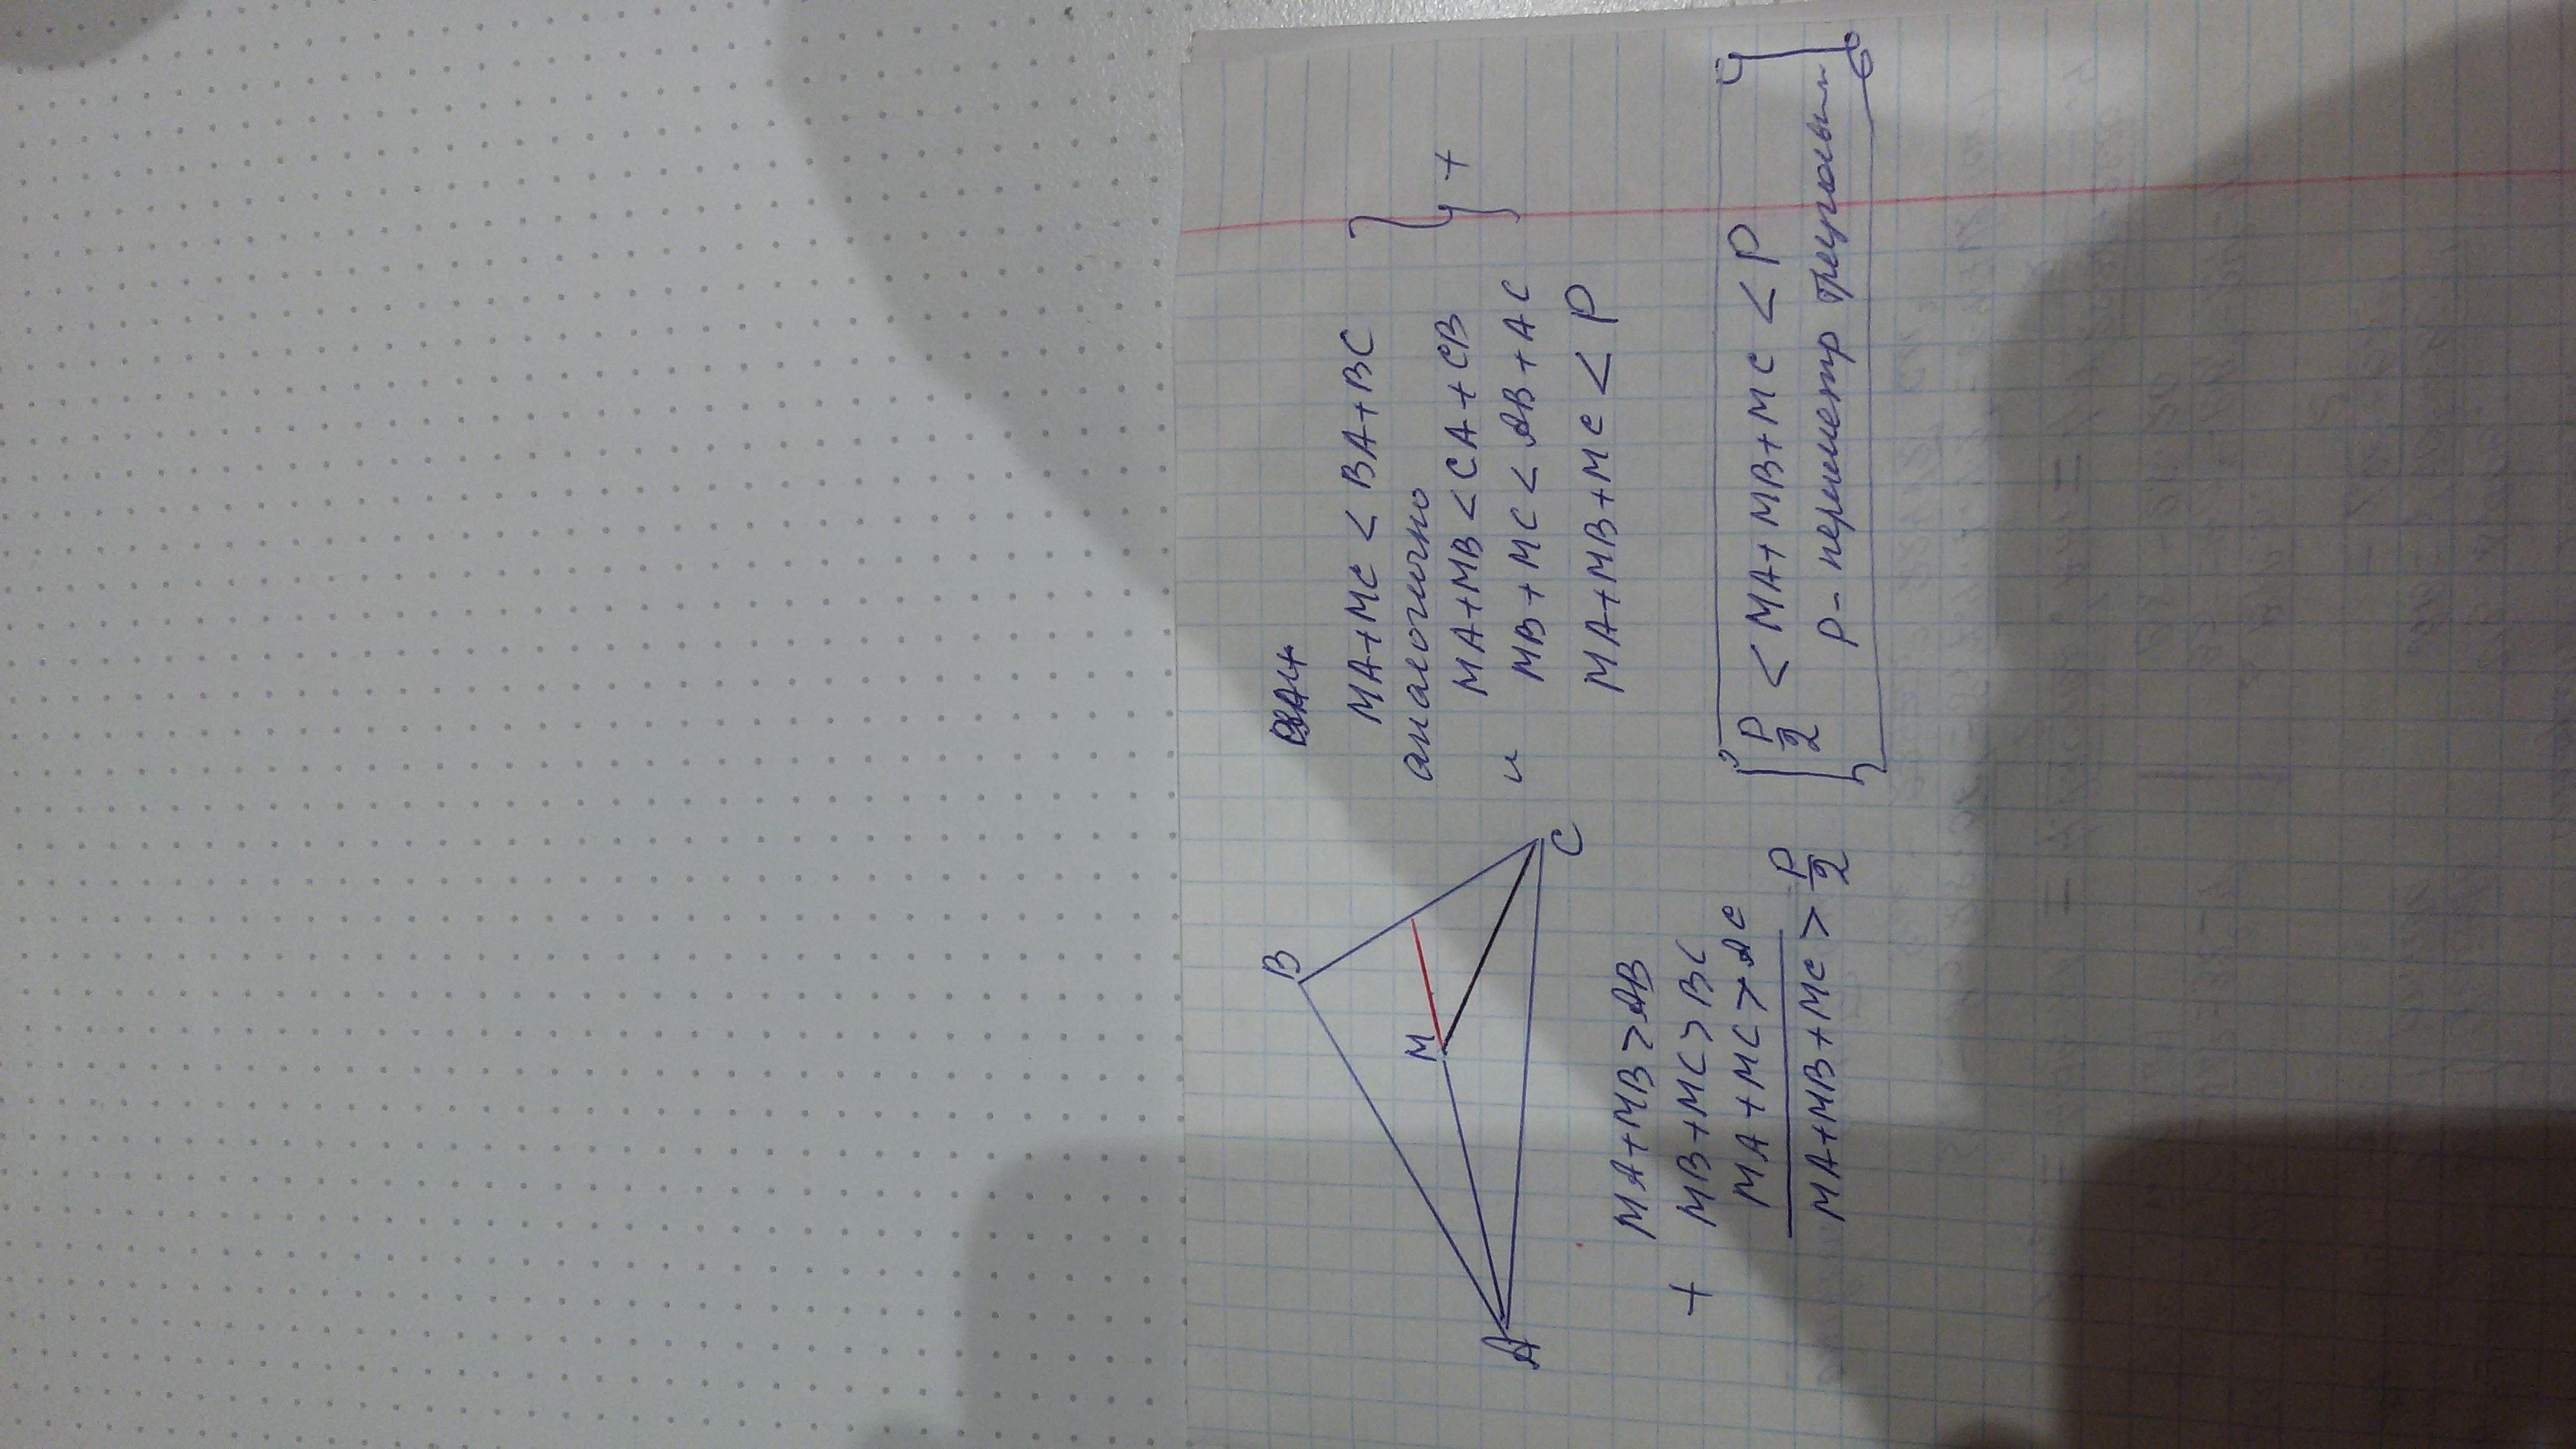 B
M
A
C
MA+MB>AB
+ MB+MC>BC
MA+MC>AC
MA+MB+MC>P/2
MA+MC<BA+BC
аналогично
MA+MB<CA+CB
и MB+MC<AB+AC
} +
MA+MB+MC<P
P/2<MA+MB+MC<P
P- периметр треугольн